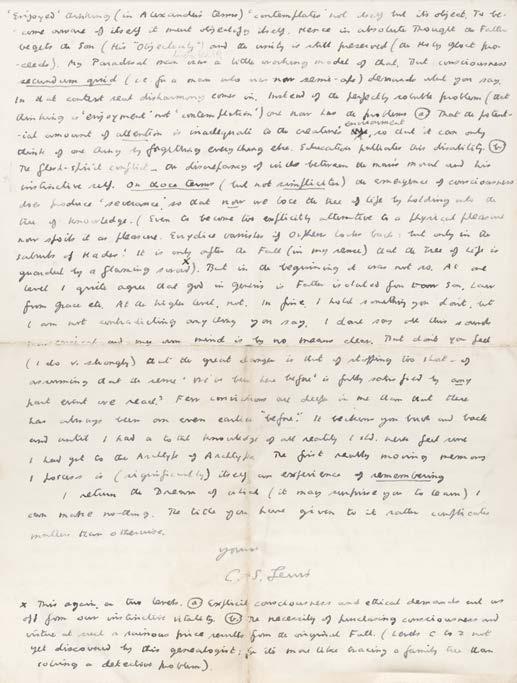 'Enjoyed' thinking (in Alexander's terms) 'contemplates' not itself but its object. To be-
come aware of itself it must objectify itself. Hence in absolute Thought the Father
begets the Son (His "Objectivity") and the unity is still preserved (the Holy Ghost pro-
ceeds). My Paradisal man was a little working model of that. But consciousness
secundum quid (i.e. for a man who was now semi-) demands what you say.
In that context real disharmony comes in. Instead of the perfectly soluble problem (that
thinking is 'enjoyment' not 'contemplation') one now has the problems (a) That the potent-
ial amount of attention is inadequate to the creature's environment, so that it can only
think of one thing by forgetting everything else. Education palliates this disability. (b)
The flesh-spirit conflict – the discrepancy of between the man's moral and his
instinctive self. On those terms (but not simpliciter) the emergence of consciousness
does produce 'severance', so that now we lose the tree of life by holding onto the
tree of knowledge. (Even to become too explicitly attentive to a physical pleasure
now spoils it as pleasure. Eurydice vanishes if Orpheus looks back: but only in the
suburbs of Hades! It is only after the Fall (in my sense) that the tree of life is
guarded by a flaming sword x). But in the beginning it was not so. At one
level I quite agree that god in genesis is Father isolated from Son, Law
from grace etc. At the higher level, not. In fine, I hold something you don't, but
I am not contradicting any thing you say. I dare say all this sounds
and my own mind is by no means clear. But don't you feel
(I do v. strongly) that the great danger is that of stopping too short – of
assuming that the sense 'We've been here before' is fully satisfied by any
past event we reach? Few convictions are deeper in me than that there
has always been an even earlier "before". It beckons you back and back
and until I had a total knowledge of all reality I shd. never feel sure
I had got to the Archtype of Archtypes. The first really moving memory
I possess is (significantly) itself an experience of remembering
I return the Dream of which (it may surprise you to learn) I
can make nothing. The title you have given to it rather complicates
matters than otherwise.
Yours
C. S. Lewis
x This again, on two levels. (a) Explicit consciousness and ethical demands cut us
off from our instinctive vitality. (b) The necessity of purchasing consciousness and
virtue at such a ruinous price results from the original Fall. (Levels C to Z not
yet discovered by this genealogist; for it's more like tracing a family tree than
solving a detective problem).